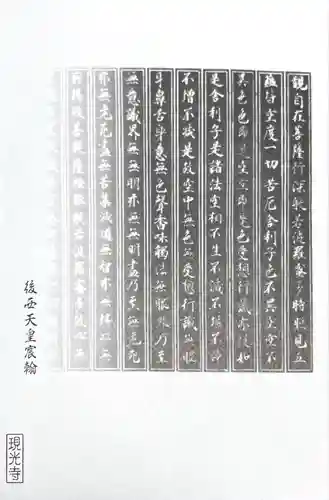 観自在菩薩行深般若波羅蜜多時照見五
蘊皆空度一切苦厄舎利子色不異空空不
異色色即是空空即是色受想行識亦復如
是舎利子是諸法空相不生不滅不垢不浄
不増不減是故空中無色無受想行識無眼
耳鼻舌身意無色聲香味觸法無眼界乃至
無意識界無無明亦無無明盡乃至無老死
亦無老死盡無苦集滅道無智亦無得以無
後西天皇宸翰
現光寺